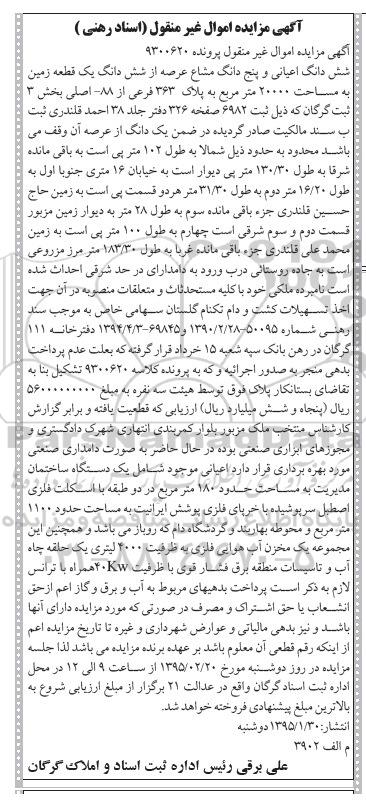 آگهی مزایده اموال غیر منقول (اسناد رهنی )
آگهی مزایده اموال غیر منقول پرونده ۹۳۰۰۶۲۰
شش دانگ اعیانی و پنج دانگ مشاع عرصه از شش دانگ یک قطعه زمین
به مساحت ۲۰۰۰۰ متر مربع به پلاک ۳۶۳ فرعی از ۸۸- اصلی بخش ۳
ثبت گرگان که ذیل ثبت ۶۹۸۲ صفحه ۳۲۶ دفتر جلد ۳۸ احمد قلندری ثبت
ب سند مالکیت صادر گردیده در ضمن یک دانگ از عرصه آن وقف می
باشد محدود به حدود ذیل شمالا به طول ۱۰۲ متر پی است به باقی مانده
شرقا به طول ۱۳۰/۳۰ متر پی دیوار است به خیابان ۱۶ متری جنوبا اول به
طول ۱۶/۲۰ متر دوم به طول ۳۱/۳۰ متر هردو قسمت پی است به زمین حاج
حسین قلندری جزء باقی مانده سوم به طول ۲۸ متر به دیوار زمین مزبور
قسمت دوم و سوم شرقی است چهارم به طول ۱۰۰ متر پی است به زمین
محمد علی قلندری جزء باقی مانده غربا به طول ۱۸۳/۳۰ متر مرز مزروعی
است به جاده روستائی درب ورود به دامدارای در حد شرقی احداث شده
است نامبرده ملکی خود با کلیه مستحدثات و متعلقات منصوبه در آن جهت
اخذ تسهیلات کشت و دام تکنام گلستان سهامی خاص به موجب سند
رهنی شماره ۵۰۰۹۵-۱۳۹۰/۲/۲۸ و ۶۹۸۴۵-۱۳۹۴/۴/۳ دفترخانه ۱۱۱
گرگان در رهن بانک سپه شعبه ۱۵ خرداد قرار گرفته که بعلت عدم پرداخت
بدهی منجر به صدور اجرائیه و که به پرونده کلاسه ۹۳۰۰۶۲۰ تشکیل بنا به
تقاضای بستانکار پلاک فوق توسط هیئت سه نفره به مبلغ ۵۶۰۰۰۰۰۰۰۰۰
ریال (پنجاه و شش میلیارد ریال) ارزیابی که قطعیت یافته و برابر گزارش
کارشناس منتخب ملک مزبور بلوار کمربندی انتهاری شهرک دادگستری و
مجوزهای ابزاری صنعتی بوده در حال حاضر به صورت دامداری صنعتی
مورد بهره برداری قرار دارد اعیانی موجود شامل یک دستگاه ساختمان
مدیریت به مساحت حدود ۱۸۰ متر مربع در دو طبقه با اسکلت فلزی
اصطبل سرپوشیده با خرپای فلزی پوشش ایرانیت به مساحت حدود ۱۱۰۰
متر مربع و محوطه بهاربند و گردشگاه دام که روباز می باشد و همچنین این
مجموعه یک مخزن آب هوایی فلزی به ظرفیت ۴۰۰۰ لیتری یک حلقه چاه
آب و تاسیسات منطقه برق فشار قوی با ظرفیت ۲۰Kw همراه با ترانس
لازم به ذکر است پرداخت بدهیهای مربوط به آب و برق و گاز اعم ازحق
انشعاب یا حق اشتراک و مصرف در صورتی که مورد مزایده دارای آنها
باشد و نیز بدهی مالیاتی و عوارض شهرداری و غیره تا تاریخ مزایده اعم
از اینکه رقم قطعی آن معلوم باشد بر عهده برنده مزایده می باشد لذا جلسه
مزایده در روز دوشنبه مورخ ۱۳۹۵/۰۲/۲۰ از ساعت ۹ الی ۱۲ در محل
اداره ثبت اسناد گرگان واقع در عدالت ۲۱ برگزار از مبلغ ارزیابی شروع به
بالاترین مبلغ پیشنهادی فروخته خواهد شد.
انتشار: ۱۳۹۵/۱/۳۰دوشنبه
م الف ۳۹۰۲
علی برقی رئیس اداره ثبت اسناد و املاک گرگان